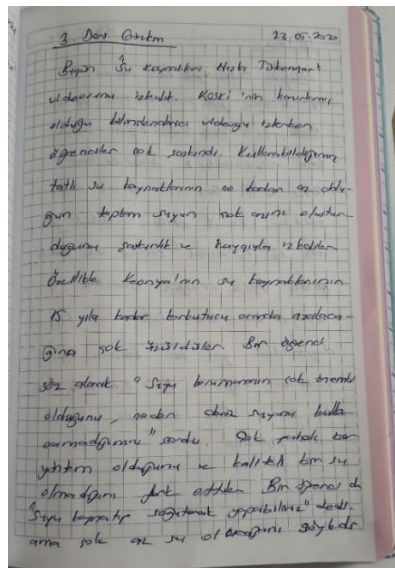 3. Ders Gözlem 23.05.2020
Bugün "Su Kaynakları Hızla Tükeniyor"
videosunu izledik. KOSKİ'nin hazırlamış
olduğu bilinçlendirici videoyu izlerken
öğrenciler çok şaşkındı. Kullanabildiğimiz
tatlı su kaynaklarının ne kadar az oldu-
ğun toplam suyun çok azını oluştur-
duğunu şaşkınlık ve kaygıyla izlediler
Özellikle Konya'nın su kaynaklarının
15 yıla kadar korkutucu oranda azalaca-
ğına çok üzüldüler Bir öğrenci
söz alarak "suyu korumanın çok önemli
olduğunu, neden deniz suyunu kulla-
namadığımızı" sordu. Çok pahalı bir
yöntem olduğunu ve kaliteli bir su
olmadığını fark ettiler Bir öğrenci de
"Suyu kaynatıp soğutarak yapabiliriz" dedi.
ama çok az su olacağını söyledi